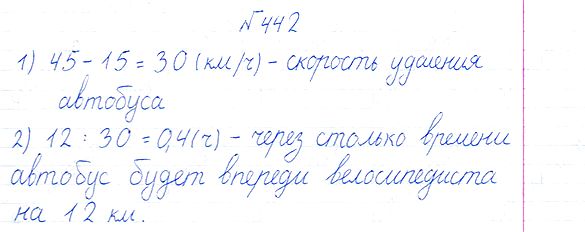 №442
1) 45 - 15 = 30 (км/ч) - скорость удаления
автобуса
2) 12 : 30 = 0,4 (ч) - через столько времени
автобус будет впереди велосипедиста
на 12 км.